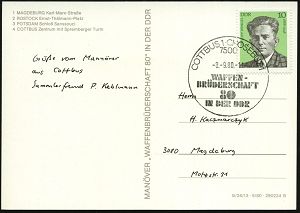 1 MAGDEBURG Karl-Marx-Straße
2 ROSTOCK Ernst-Thälmann-Platz
3 POTSDAM Schloß Sanssouci
4 COTTBUS Zentrum mit Spremberger Turm
Grüße vom Manöver
aus Cottbus
Sammlerfreund P. Kehlmann
MANÖVER „WAFFENBRÜDERSCHAFT 80" IN DER DDR
COTTBUS 1
7500
-9.80
WAFFEN-
BRÜDERSCHAFT
80
IN DER DDR
DDR
10
Herrn
H. Kaczmarczyk
3080 Magdeburg